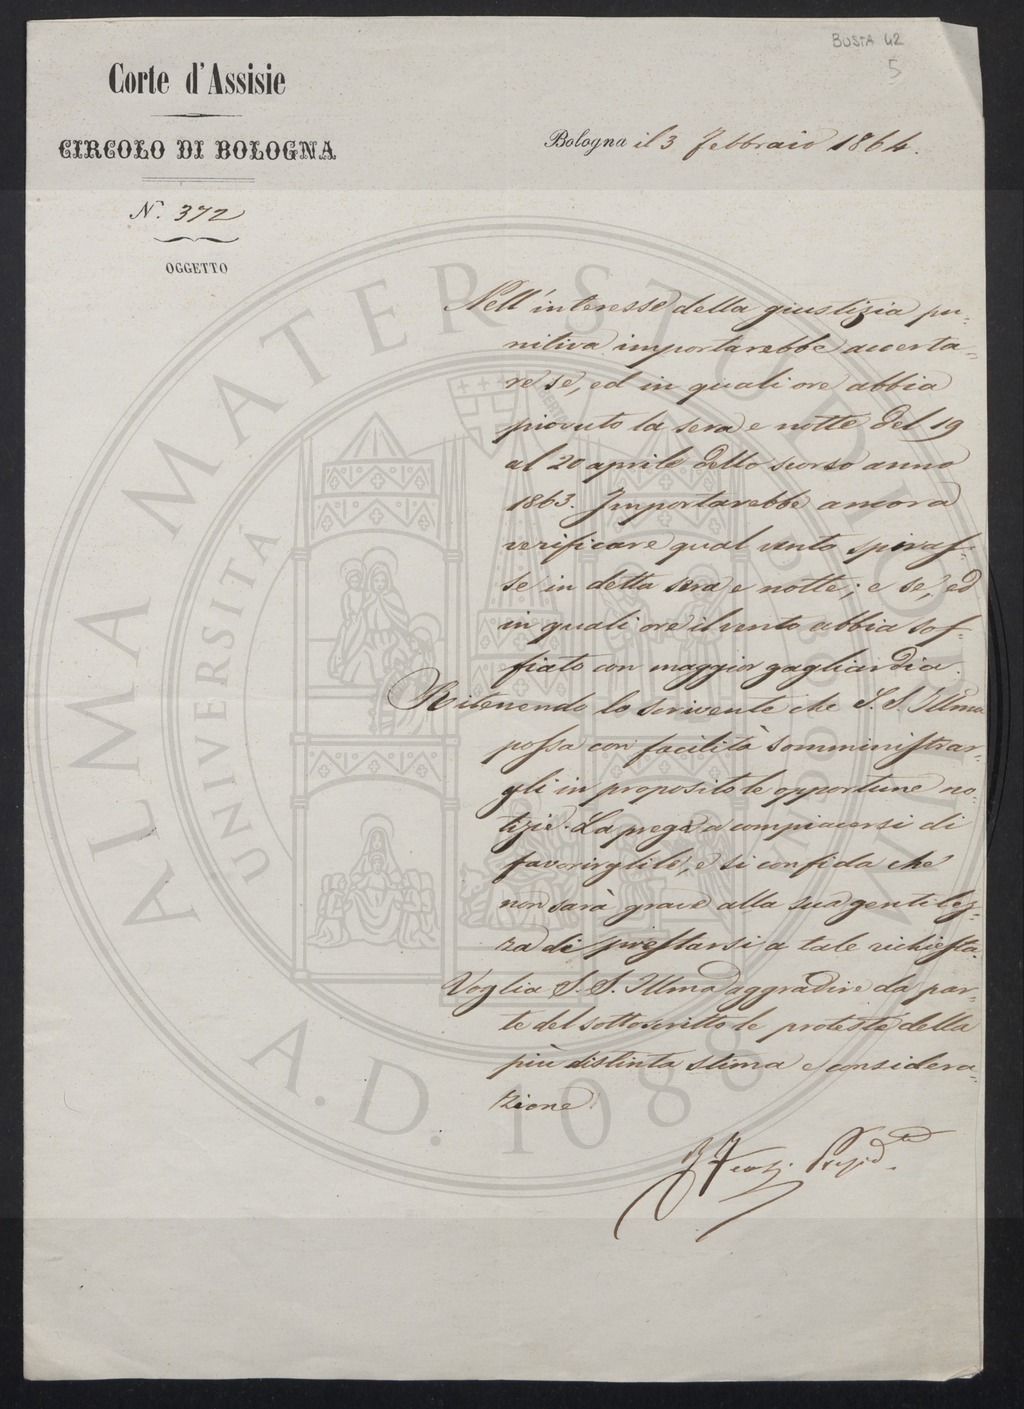 BUSTA 42
5
Corte d'Assisie
CIRCOLO DI BOLOGNA
Bologna il 3 Febbraio 1864.
N. 372
OGGETTO
Nell'interesse della giustizia pu-
nitiva importarebbe accerta-
re se, ed in quali ore abbia
piovuto la sera e notte del 19
al 20 aprile dello scorso anno
1863. Importarebbe ancora
verificare qual vento spiras-
se in detta sera e notte; e se, ed
in quali ore il vento abbia sof-
fiato con maggior gagliardia.
Ritenendo lo scrivente che S. S. Illma
possa con facilità somministrar-
gli in proposito le opportune no-
tizie. La prega a compiacersi di
favorirglile, e si confida che
non sarà grave alla sua gentilez-
za di prestarsi a tale richiesta.
Voglia S. S. Illma aggradire da par-
te del sottoscritto le proteste della
più distinta stima e considera-
zione.
Presid.te
ALMA MATER STUDIORUM
UNIVERSITÀ DI BOLOGNA
LIBERTAS
A.D. 1088